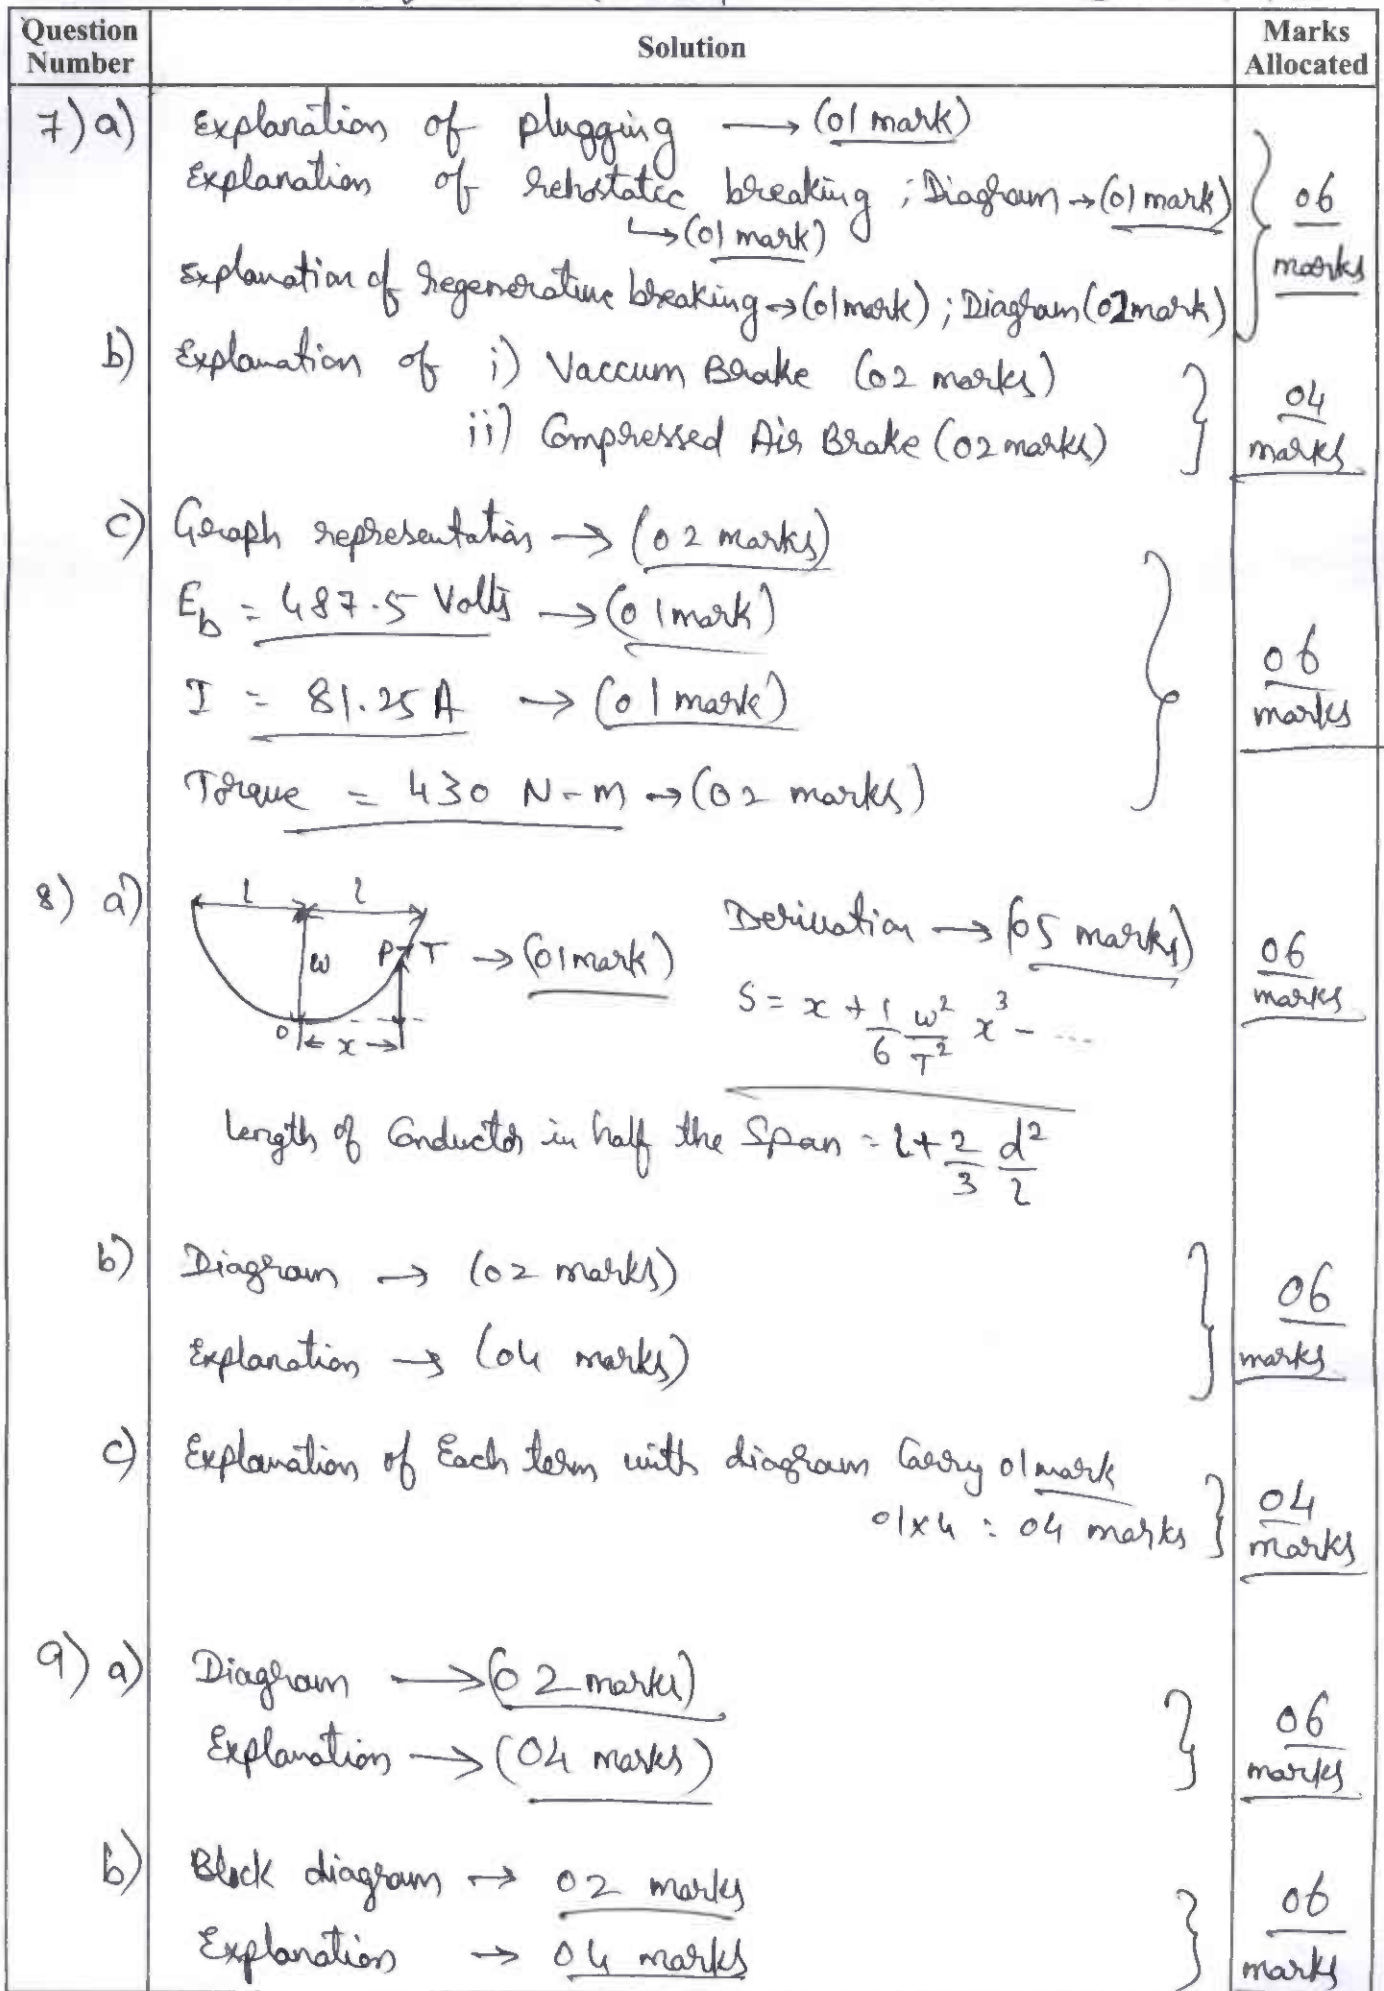 Question Number
Solution
Marks Allocated
7) a) Explanation of plugging → (01 mark)
Explanation of rehostatic breaking ; Diagram → (01 mark)
↳ (01 mark)
06 marks
Explanation of regenerative breaking → (01 mark) ; Diagram (02 mark)
b) Explanation of i) Vaccum Brake (02 marks)
ii) Compressed Air Brake (02 marks)
04 marks
c) Graph representation → (02 marks)
E_b = 487.5 Volts → (01 mark)
I = 81.25 A → (01 mark)
06 marks
Torque = 430 N-m → (02 marks)
8) a) l l
w P T → (01 mark) Derivation → (05 marks)
06 marks
o x
S = x + 1/6 w²/T² x³ - ....
length of Conductor in half the Span = l + 2/3 d²/l
b) Diagram → (02 marks)
Explanation → (04 marks)
06 marks
c) Explanation of Each term with diagram Carry 01 mark
01x4 = 04 marks
04 marks
9) a) Diagram → (02 marks)
Explanation → (04 marks)
06 marks
b) Block diagram → 02 marks
Explanation → 04 marks
06 marks